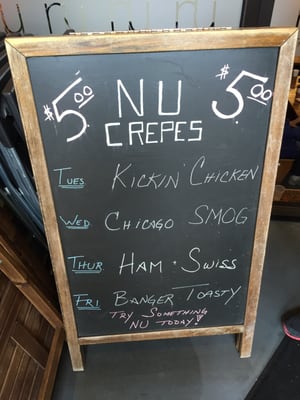 $5.00 NU $5.00
CREPES
TUES KICKIN' CHICKEN
WED CHICAGO SMOG
THUR HAM · SWISS
FRI BANGER TOASTY
TRY SOMETHING
NU TODAY!